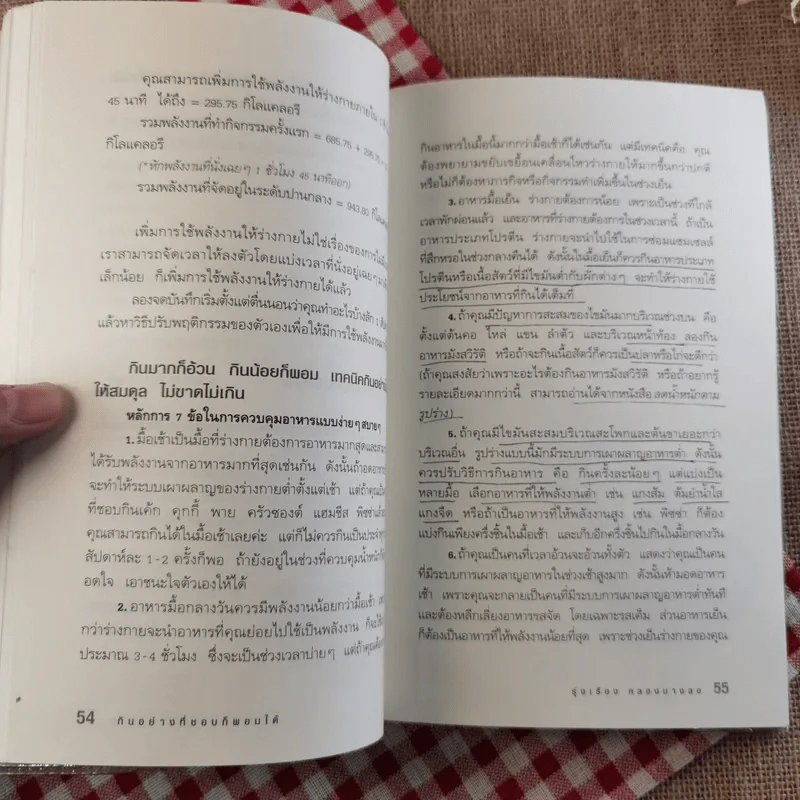 คุณสามารถเพิ่มการใช้พลังงานให้ร่างกายภายใน
45 นาที ได้ถึง = 295.75 กิโลแคลอรี
รวมพลังงานที่ทำกิจกรรมครั้งแรก =
กิโลแคลอรี
(*หักพลังงานที่นั่งเฉยๆ 1 ชั่วโมง 45 นาทีออก)
รวมพลังงานที่จัดอยู่ในระดับปานกลาง = 943.80
เพิ่มการใช้พลังงานให้ร่างกายไม่ใช่เรื่องของการ
เราสามารถจัดเวลาให้ลงตัวโดยแบ่งเวลาที่นั่งอยู่เฉยๆ
เล็กน้อย ก็เพิ่มการใช้พลังงานให้ร่างกายได้แล้ว
ลองจดบันทึกเริ่มตั้งแต่ตื่นนอนว่าคุณทำอะไรบ้างสัก 1
แล้วหาวิธีปรับพฤติกรรมของตัวเองเพื่อให้มีการใช้พลังงาน
กินมากก็อ้วน กินน้อยก็พอม เทคนิคกินอย่าง
ให้สมดุล ไม่ขาดไม่เกิน
หลักการ 7 ข้อในการควบคุมอาหารแบบง่ายๆ สบายๆ
1. มื้อเช้าเป็นมื้อที่ร่างกายต้องการอาหารมากสุดและ
ได้รับพลังงานจากอาหารมากที่สุดเช่นกัน ดังนั้นถ้าอดอาหาร
จะทำให้ระบบเผาผลาญของร่างกายต่ำตั้งแต่เช้า แต่ถ้าคุณ
ที่ชอบกินเค้ก คุกกี้ พาย ครัวซองต์ แฮมชีส พิซซ่าแล้ว
คุณสามารถกินได้ในมื้อเช้าเลยค่ะ แต่ก็ไม่ควรกินเป็นประจำทุก
สัปดาห์ละ 1-2 ครั้งก็พอ ถ้ายังอยู่ในช่วงที่ควบคุมน้ำหนัก
อดใจ เอาชนะใจตัวเองให้ได้
2. อาหารมื้อกลางวันควรมีพลังงานน้อยกว่ามื้อเช้า
กว่าร่างกายจะนำอาหารที่คุณย่อยไปใช้เป็นพลังงาน ก็จะใช้
ประมาณ 3-4 ชั่วโมง ซึ่งจะเป็นช่วงเวลาบ่ายๆ แต่ถ้าคุณ
54 กินอย่างที่ชอบก็พอมได้
กินอาหารในมื้อนี้มากกว่ามื้อเช้าก็ได้เช่นกัน แต่มีเทคนิคคือ คุณ
ต้องพยายามขยับเขยื้อนเคลื่อนไหวร่างกายให้มากขึ้นกว่าปกติ
หรือไม่ก็ต้องหาภารกิจหรือกิจกรรมทำเพิ่มขึ้นในช่วงเย็น
3. อาหารมื้อเย็น ร่างกายต้องการน้อย เพราะเป็นช่วงที่ใกล้
เวลาพักผ่อนแล้ว และอาหารที่ร่างกายต้องการในช่วงเวลานี้ ถ้าเป็น
อาหารประเภทโปรตีน ร่างกายจะนำไปใช้ในการซ่อมแซมเซลล์
ที่สึกหรอในช่วงกลางคืนได้ ดังนั้นในมื้อเย็นก็ควรกินอาหารประเภท
โปรตีนหรือเนื้อสัตว์ที่มีไขมันต่ำกับผักต่างๆ จะทำให้ร่างกายใช้
ประโยชน์จากอาหารที่กินได้เต็มที่
4. ถ้าคุณมีปัญหาการสะสมของไขมันมากบริเวณช่วงบน คือ
ตั้งแต่ต้นคอ ไหล่ แขน ลำตัว และบริเวณหน้าท้อง ลองกิน
อาหารมังสวิรัติ หรือถ้าจะกินเนื้อสัตว์ก็ควรเป็นปลาหรือไก่จะดีกว่า
(ถ้าคุณสงสัยว่าเพราะอะไรต้องกินอาหารมังสวิรัติ หรือถ้าอยากรู้
รายละเอียดมากกว่านี้ สามารถอ่านได้จากหนังสือ ลดน้ำหนักตาม
รูปร่าง)
5. ถ้าคุณมีไขมันสะสมบริเวณสะโพกและต้นขาเยอะกว่า
บริเวณอื่น รูปร่างแบบนี้มักมีระบบการเผาผลาญอาหารต่ำ ดังนั้น
ควรปรับวิธีการกินอาหาร คือ กินครั้งละน้อยๆ แต่แบ่งเป็น
หลายมื้อ เลือกอาหารที่ให้พลังงานต่ำ เช่น แกงส้ม ต้มยำน้ำใส
แกงจืด หรือถ้าเป็นอาหารที่ให้พลังงานสูง เช่น พิซซ่า ก็ต้อง
แบ่งกินเพียงครึ่งชิ้นในมื้อเช้า และเก็บอีกครึ่งชิ้นไปกินในมื้อกลางวัน
6. ถ้าคุณเป็นคนที่เวลาอ้วนจะอ้วนทั้งตัว แสดงว่าคุณเป็นคน
ที่มีระบบการเผาผลาญอาหารในช่วงเช้าสูงมาก ดังนั้นห้ามอดอาหาร
เช้า เพราะคุณจะกลายเป็นคนที่มีระบบการเผาผลาญอาหารต่ำทันที
และต้องหลีกเลี่ยงอาหารรสจัด โดยเฉพาะรสเค็ม ส่วนอาหารเย็น
ก็ต้องเป็นอาหารที่ให้พลังงานน้อยที่สุด เพราะช่วงเย็นร่างกายของคุณ
รุ่งเรือง คลองบางลอ 55